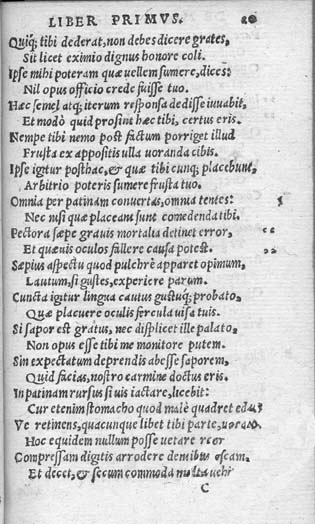 LIBER PRIMVS. 20
Quiq; tibi dederat, non debes dicere grates,
Sit licet eximio dignus honore coli.
Ipse mihi poteram quæ uellem sumere, dices:
Nil opus officio crede fuisse tuo.
Hæc semel atq; iterum responsa dedisse iuuabit,
Et modò quid prosint hæc tibi, certus eris.
Nempe tibi nemo post factum porriget illud
Frusta ex appositis ulla uoranda cibis.
Ipse igitur posthac, & quæ tibi cunq; placebunt,
Arbitrio poteris sumere frusta tuo.
Omnia per patinam conuertas, omnia tentes:
Nec nisi quæ placeant sunt comedenda tibi.
Pectora sæpe grauis mortalia detinet error,
Et quæuis oculos fallere causa potest.
Sæpius aspectu quod pulchrè apparet opimum,
Lautum, si gustes, experiere parum.
Cuncta igitur lingua cautus gustuq; probato,
Quæ placuere oculis fercula uisa tuis.
Si sapor est gratus, nec displicet ille palato,
Non opus esse tibi me monitore putem.
Sin expectatum deprendis abesse saporem,
Quid facias, nostro carmine doctus eris.
In patinam rursus si uis iactare, licebit:
Cur etenim stomacho quod malè quadret
Ve retinens, quacunque libet tibi parte,
Hoc equidem nullum posse uetare reor
Compressam digitis arrodere dentibus escam.
Et decet, & secum commoda multa uehit
C